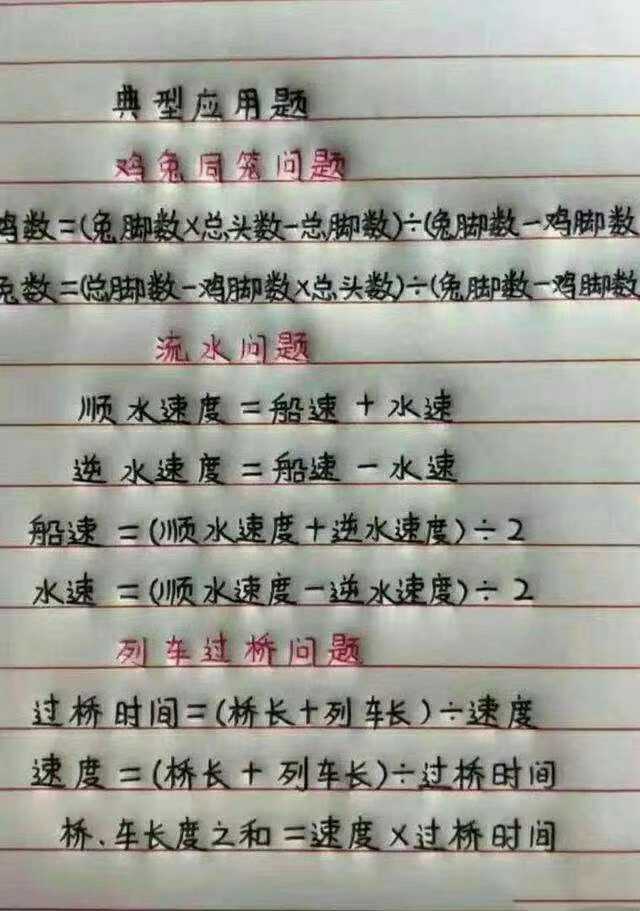 典型应用题
鸡兔同笼问题
鸡数=(兔脚数×总头数-总脚数)÷(兔脚数-鸡脚数
兔数=(总脚数-鸡脚数×总头数)÷(兔脚数-鸡脚数
流水问题
顺水速度=船速+水速
逆水速度=船速-水速
船速=(顺水速度+逆水速度)÷2
水速=(顺水速度-逆水速度)÷2
列车过桥问题
过桥时间=(桥长+列车长)÷速度
速度=(桥长+列车长)÷过桥时间
桥、车长度之和=速度×过桥时间